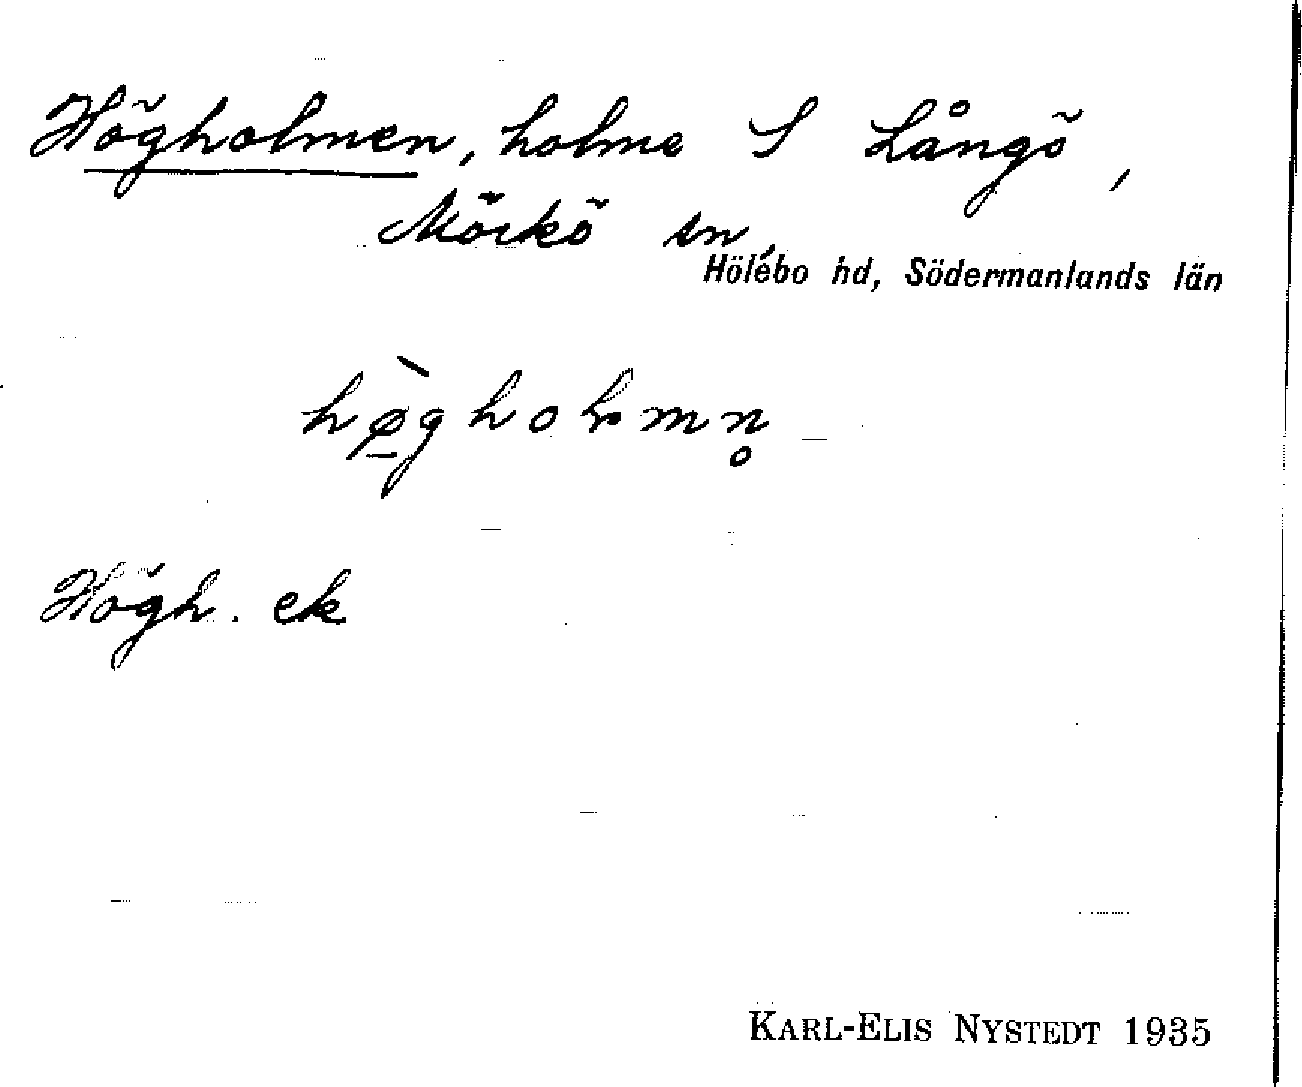 Högholmen, holme S Långö,
Mörkö sn,
Hölebo hd, Södermanlands län
hø̱̀gholmn̥
Högh. ek
KARL-ELIS NYSTEDT 1935